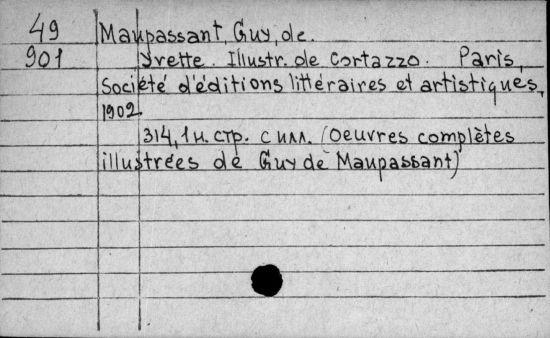 49 Maupassant, Guy, de.
901 Yvette. Illustr. de Cortazzo. Paris,
Société d'éditions littéraires et artistiques,
1902.
314, 1 н. стр. с илл. (Oeuvres complètes
illustrées de Guy de Maupassant)